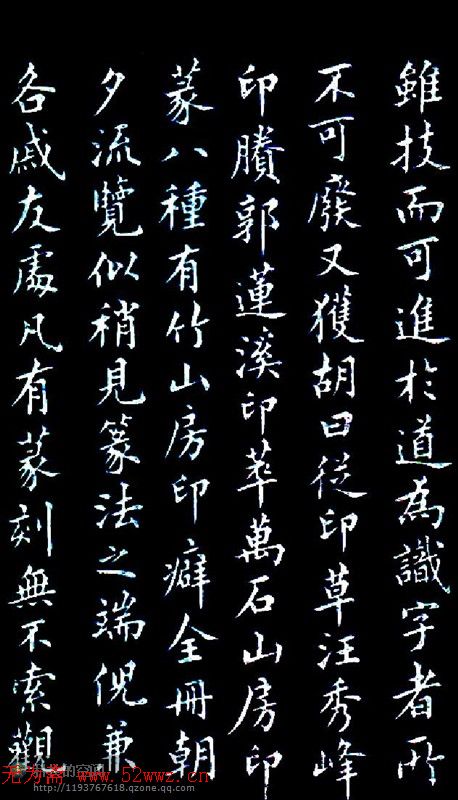 雖技而可進於道為識字者所
不可廢又獲胡曰從印草汪秀峰
印賸郭蓮溪印萃萬石山房印
篆八種有竹山房印癖全冊朝
夕流覽似稍見篆法之端倪兼
各戚友處凡有篆刻無不索觀
无为斋 www.52wwz.cn
的空间
http://1193767618.qzone.qq.com